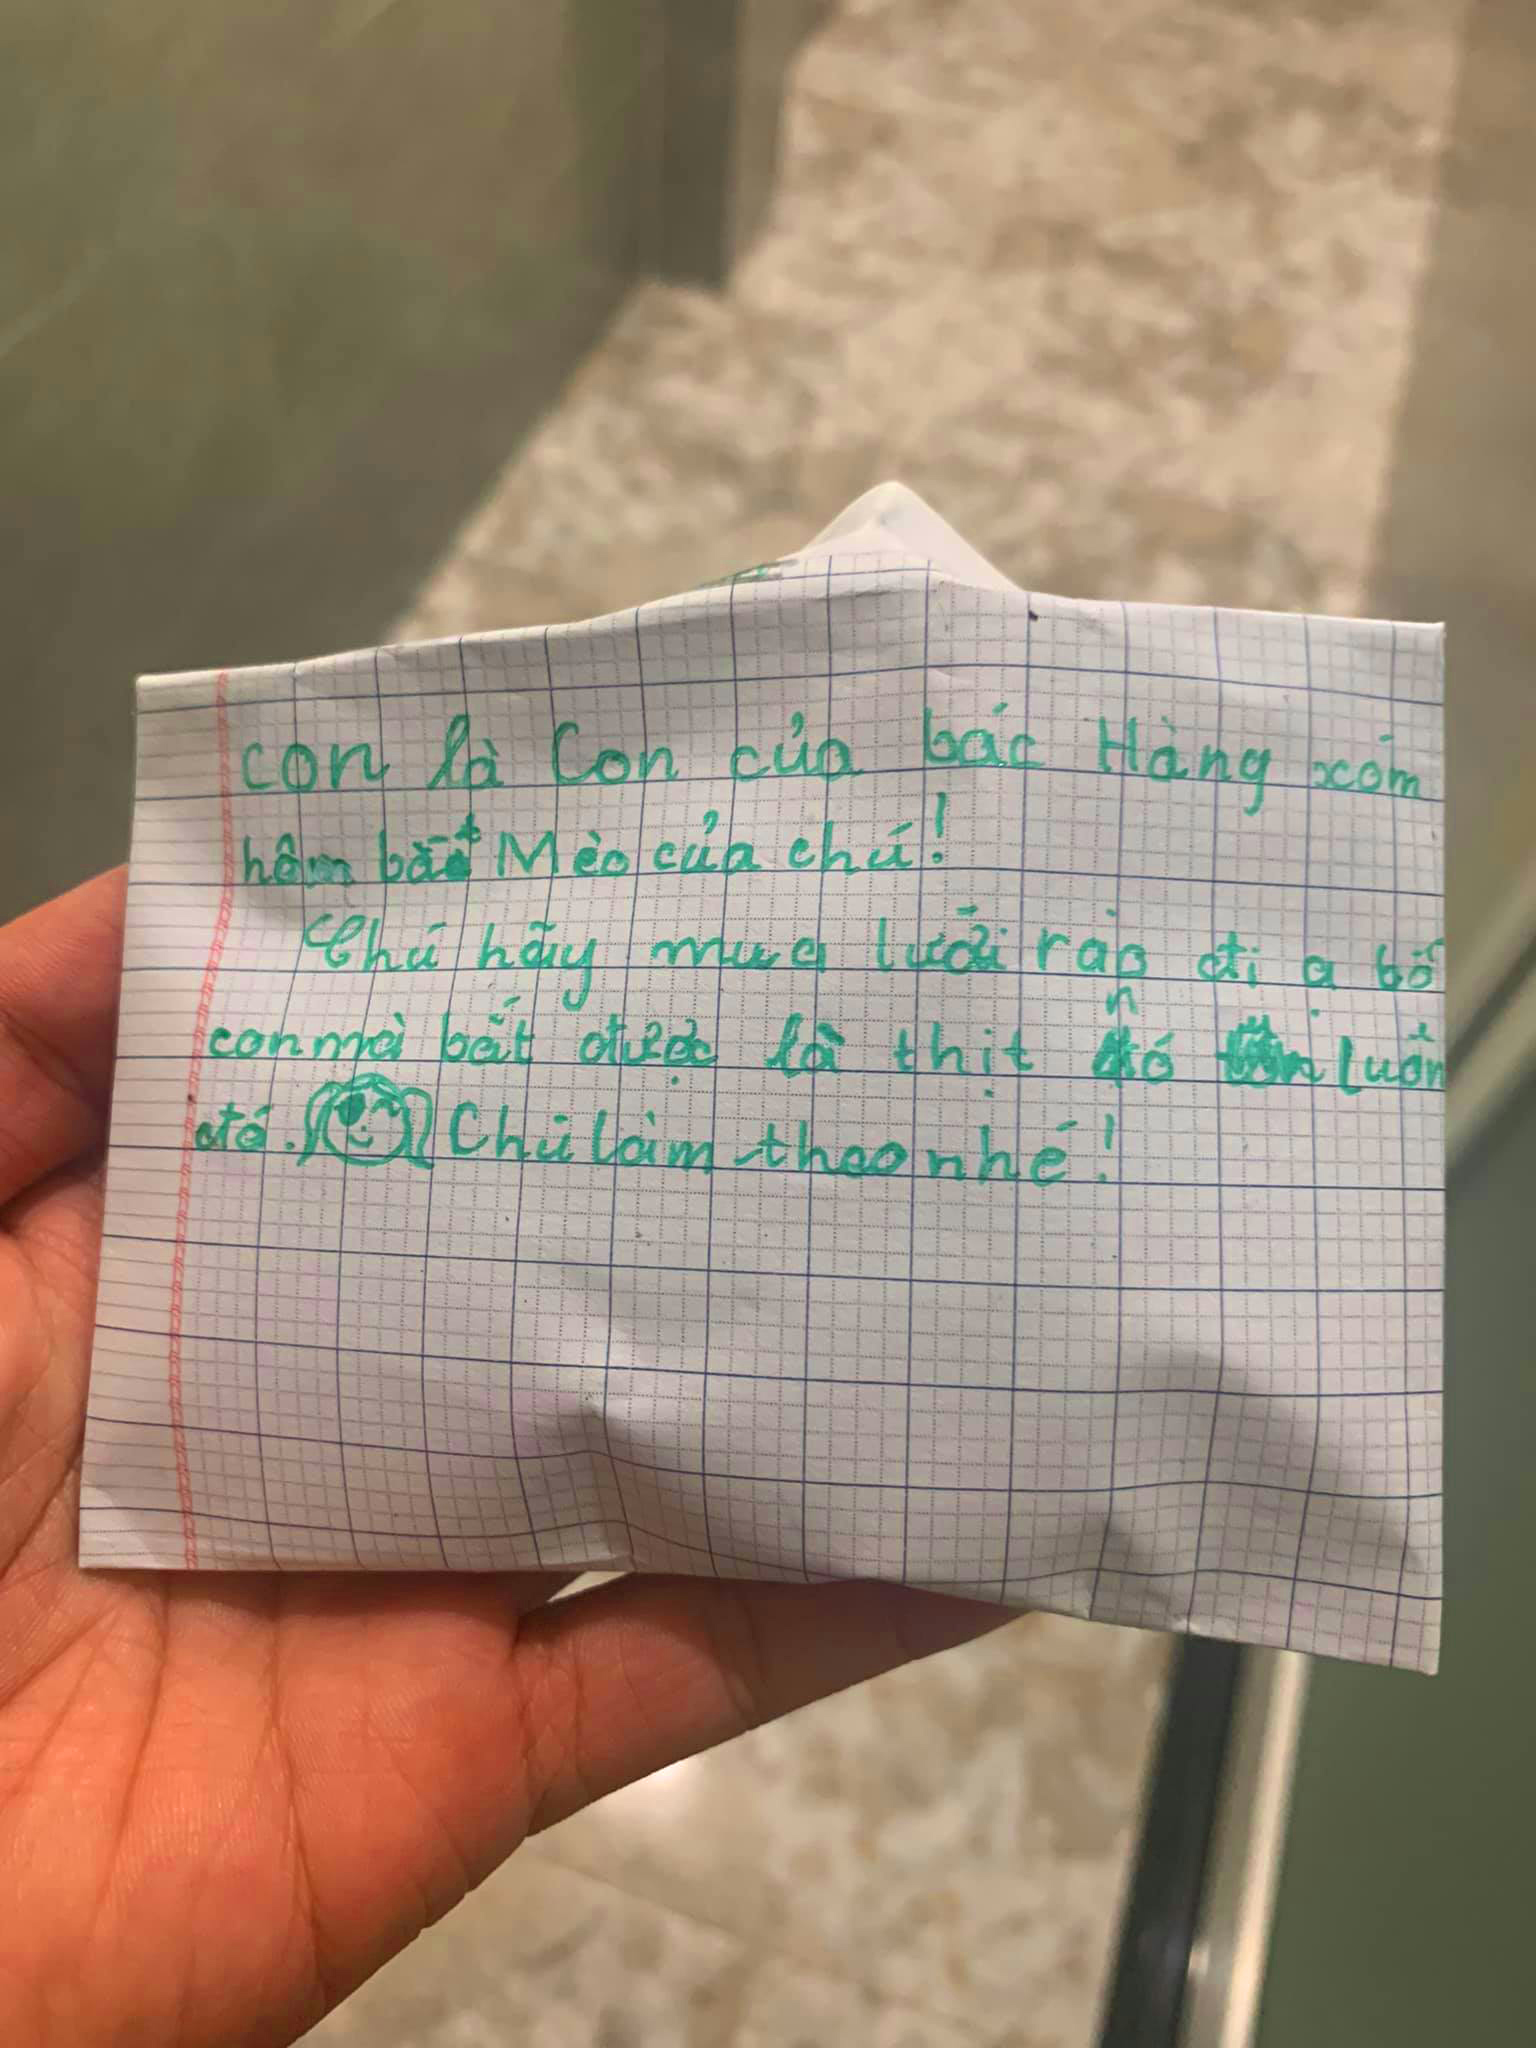 con là Con của bác Hàng xóm
hôm bắt Mèo của chú!
Chú hãy mua lưới rào đi ạ bố
con mà bắt được là thịt nó luôn
đó. Chú làm theo nhé!